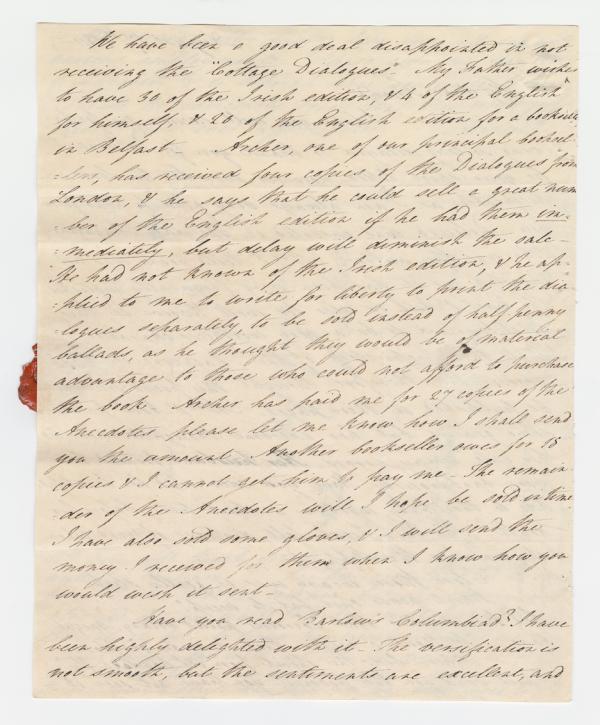 We have been a good deal disappointed in not
receiving the "Cottage Dialogues". My Father wishes
to have 30 of the Irish edition, & 4 of the English
for himself, & 20 of the English edition for a bookseller
in Belfast - Archer, one of our principal booksel-
-lers, has received four copies of the Dialogues from
London, & he says that he could sell a great num
ber of the English edition if he had them im-
-mediately, but delay will diminish the sale -
He had not known of the Irish edition, & he ap-
-plied to me to write for liberty to print the dia-
-logues separately, to be sold instead of half penny
ballads, as he thought they would be of material
advantage to those who could not afford to purchase
the book Archer has paid me for 27 copies of the
Anecdotes please let me know how I shall send
you the amount Another bookseller owes for 18
copies & I cannot get him to pay me - The remain-
-der of the Anecdotes will I hope be sold in time
I have also sold some gloves, & I will send the
money I received for them when I know how you
would wish it sent -
Have you read Barlow's Columbiad? I have
been highly delighted with it - The versification is
not smooth, but the sentiments are excellent, and